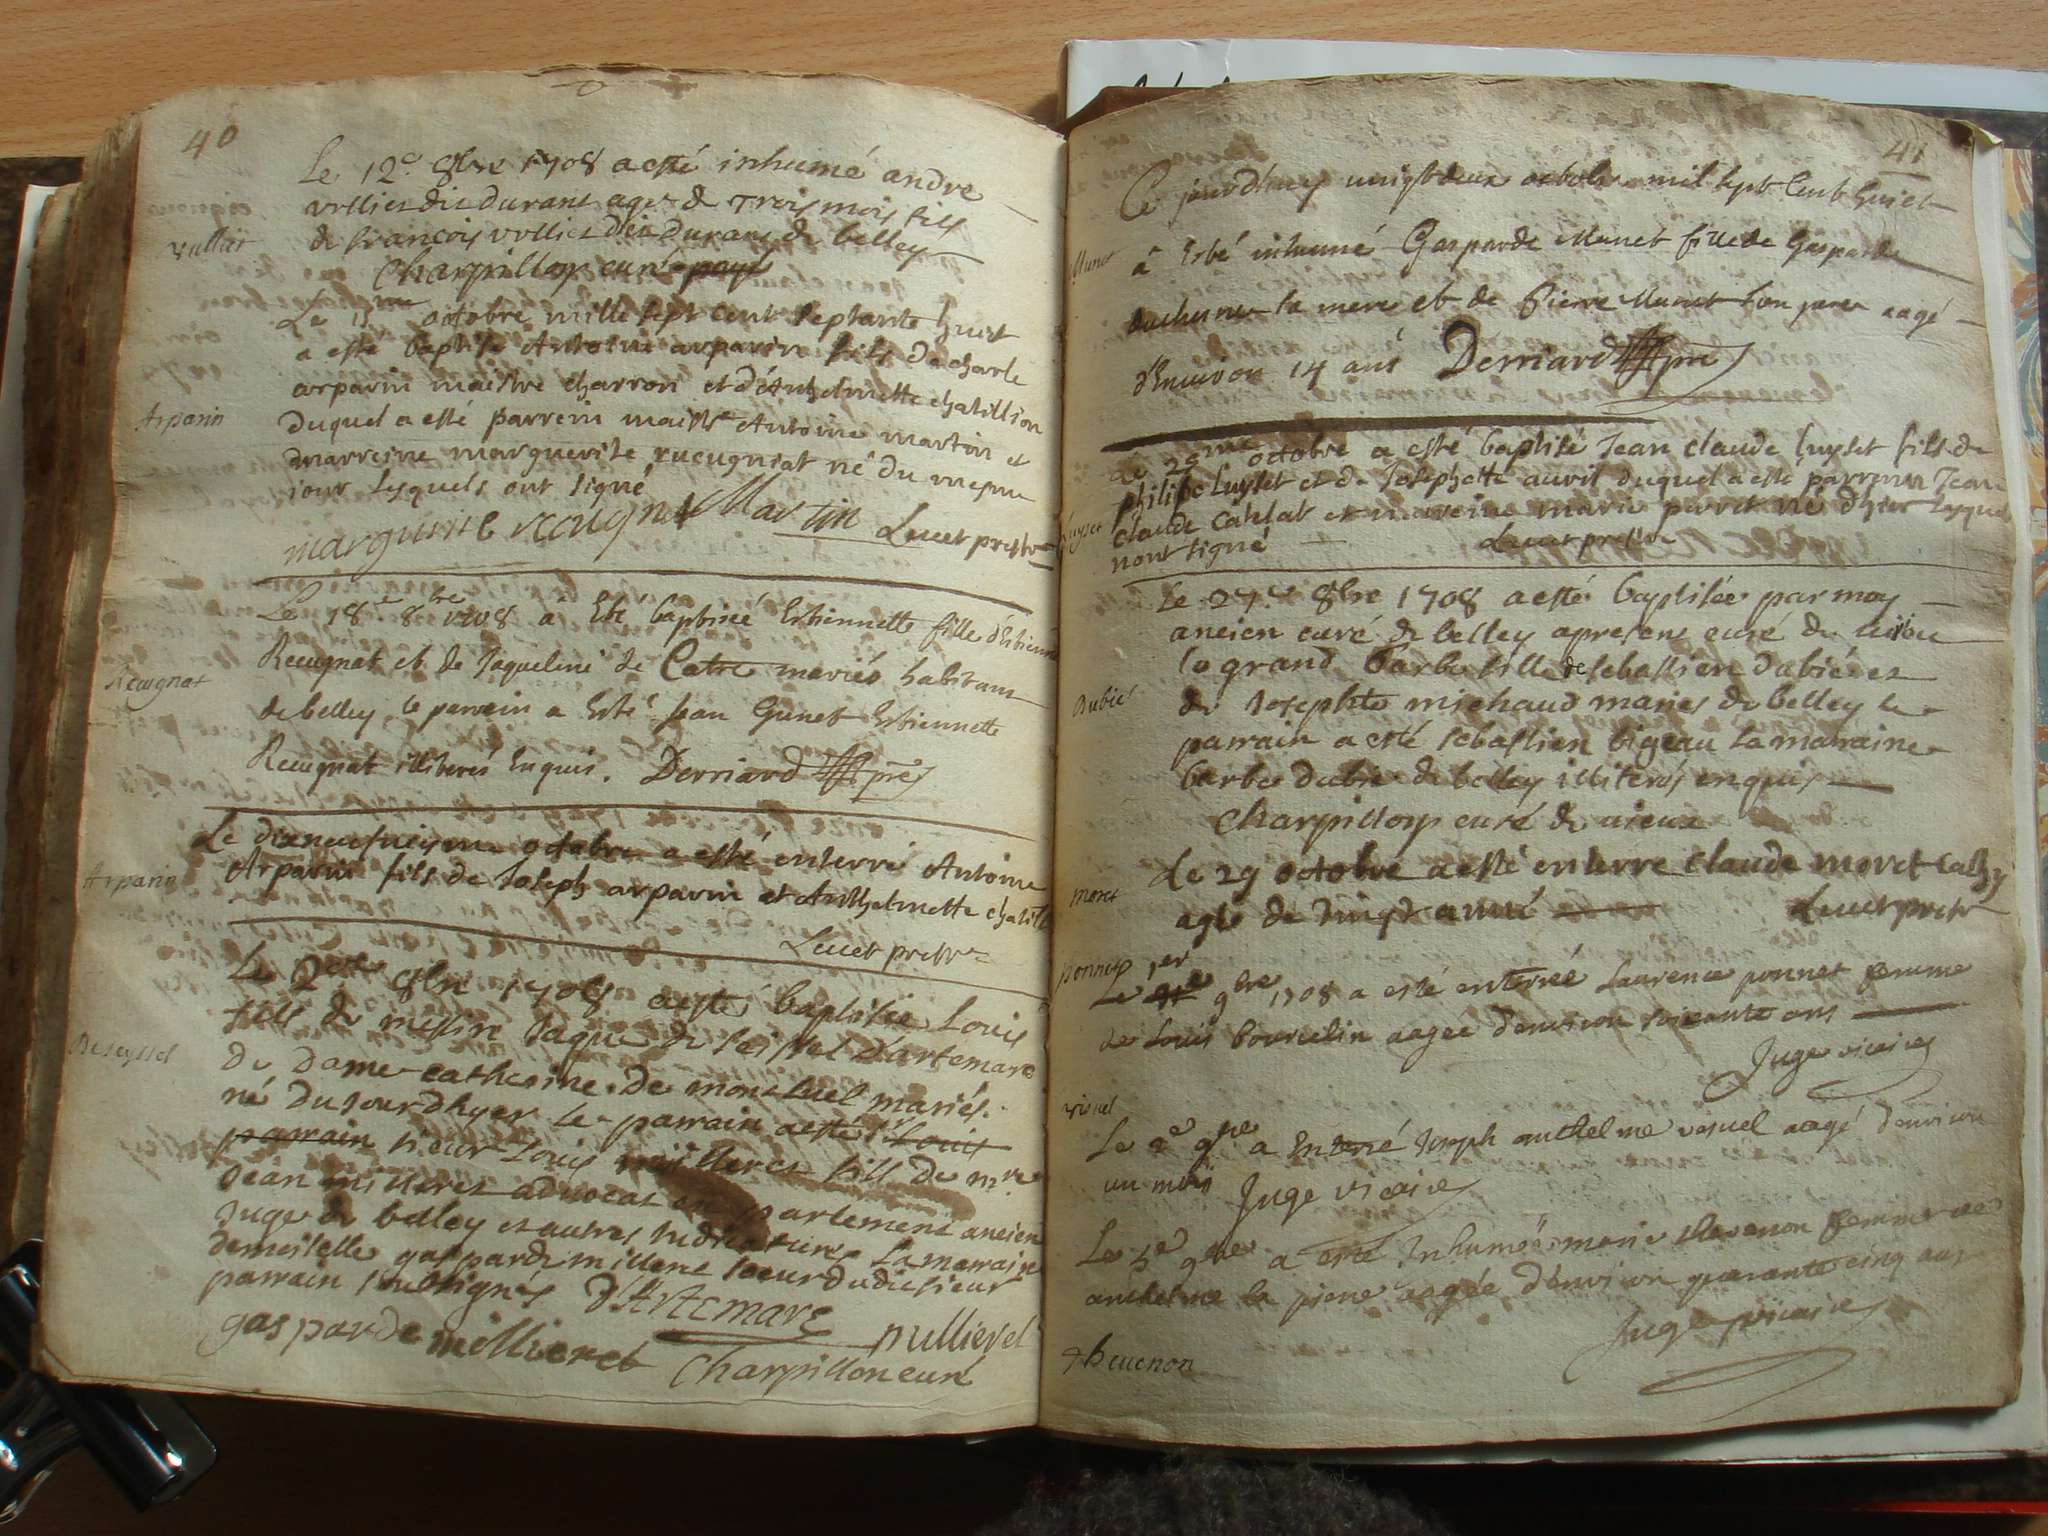 40
Le 12e 8bre 1708 a esté inhumé andre
vullier dit durant agé de trois mois fils
vulliet
de francois vullier dit durand de belley
Charpillon curé
Le 15me octobre mille sept cent septante huit
a esté baptisé Antoine arparin fils de charle
arparin maistre charron et d'Anthelmette chatillion
Arparin
duquel a esté parrein maistre Antoine martin et
marreine marguerite rucugniat né du mesme
jour lesquels ont signé
marguerite recugnat Martin Lucet prestre
Le 18e 8bre 1708 a Esté baptisée Estiennette fille d'Estienne
Recugnat et de Jaqueline de Catre mariés habitans
Recugnat
de belley, le parrein a Esté Jean Genet Estiennette
Recugnat illiterés Enquis. Derriard pre
Le dixneufvieme octobre a esté enterré Antoine
Arparin fils de Joseph arparin et Anthelmette chatill
Arparin
Lucet prestre
Le 2 8bre 1708 a esté baptisée Louis
fils de messire Jaque de seissel d'artemare
De seyssel
de Dame catherine De montluel mariés.
né du jourdhyer le parrain a esté Louis
parrain sieur Louis millieret fils de mre
Jean milieret advocat en parlement ancien
juge de belley et autres judicatures La marraine
demoiselle gasparde millieret soeur du dit sieur
parrain soubsignés d'Artemare
gasparde millieret millieret
Charpillon curé
41
Ce jourdhuy vingtdeux octobre mil sept Cent huict
Munet
a Esté inhumé Gasparde Munet fille de Gasparde
duchesne la mere et de Pierre Munet son pere aagé
d'Environ 14 ans Derriard pre
Le 25me octobre a esté baptisé Jean claude luyset fils de
philipe Luyset et de Josephette auril duquel a esté parrein Jean
Luyset
claude Cahlat et mareine marie perret né dhier lesquels
nont signé Lucet prestre
Le 27e 8bre 1708 a esté baptisée par moy
ancien curé de belley apresent curé de
le grand barbe fille de sebastien dabiéres
Dubié
de Josephte michaud mariés de belley le
parrain a esté sebastien bigeau la marraine
barbe dubie de belley illiterés enquis
Charpillon curé de vieux
Le 29 octobre a esté enterre claude moret
moret
agé de vingt année Lucet prestre
ponnet
Le 1er 9bre 1708 a esté enterrée Laurence ponnet femme
de Louis bourcelin aagée denviron soixante ans
Juge vicaire
visuel
Le 2e 9bre a Enterré Joseph anthelme vesuel aagé denviron
un mois Juge vicaire
Le 5e 9bre a esté Inhumée marie thevenon femme de
anthelme la piere aagée d'environ quarante cinq ans
Juge vicaire
thevenon